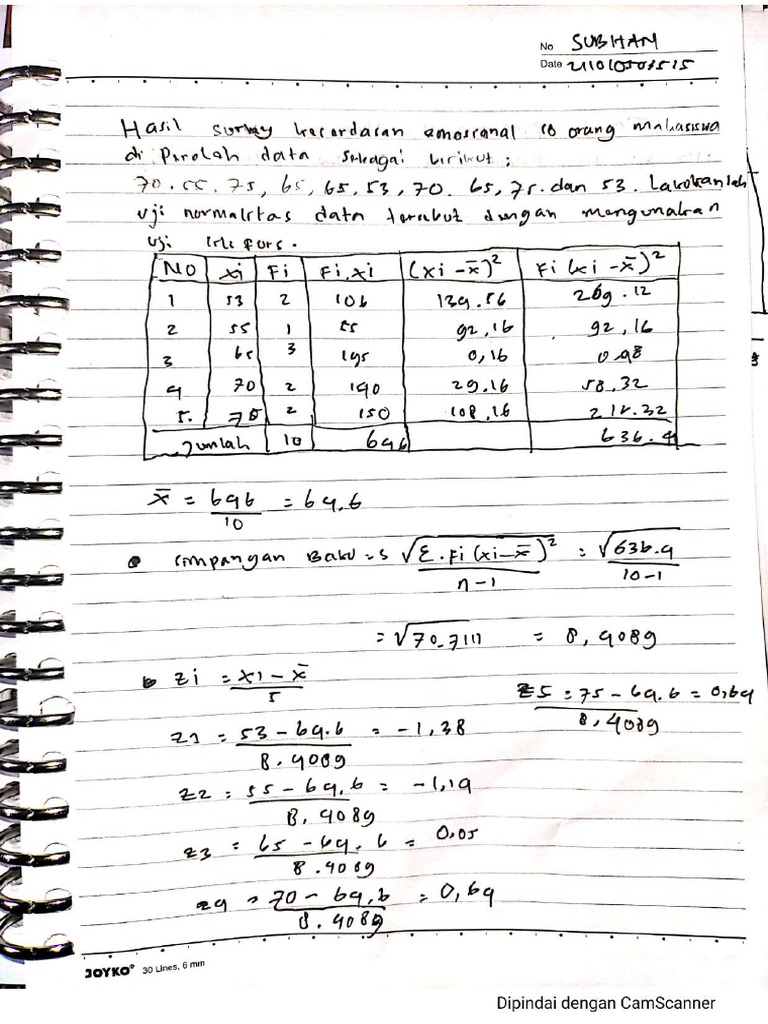 No SUBHAN
Date 211010501515
Hasil survey kecerdasan emosional 10 orang mahasiswa
di Perolah data sebagai berikut :
70. 55. 75, 65, 65, 53, 70. 65, 75. dan 53. Lakukanlah
uji normalitas data tersebut dengan mengunakan
uji lilefors.
No xi Fi Fi.xi (xi - x̄)² Fi (xi - x̄)²
1 53 2 106 134.56 269.12
2 55 1 55 92,16 92,16
3 65 3 195 0,16 0.48
4 70 2 140 29.16 58,32
5. 75 2 150 108,16 216.32
Jumlah 10 646 636.4
x̄ = 646/10 = 64,6
• Simpangan Baku = S √Σ.Fi (xi - x̄)²/n-1 = √636.4/10-1
= √70.7111 = 8,4089
• Zi = xi - x̄/S
Z5 = 75 - 64.6/8,4089 = 0,64
Z1 = 53 - 64.6/8.4089 = -1,38
Z2 = 55 - 64,6/8,4089 = -1,14
Z3 = 65 - 64.6/8.4089 = 0,05
Z4 = 70 - 64,6/8.4089 = 0,64
JOYKO® 30 Lines, 6 mm
Dipindai dengan CamScanner